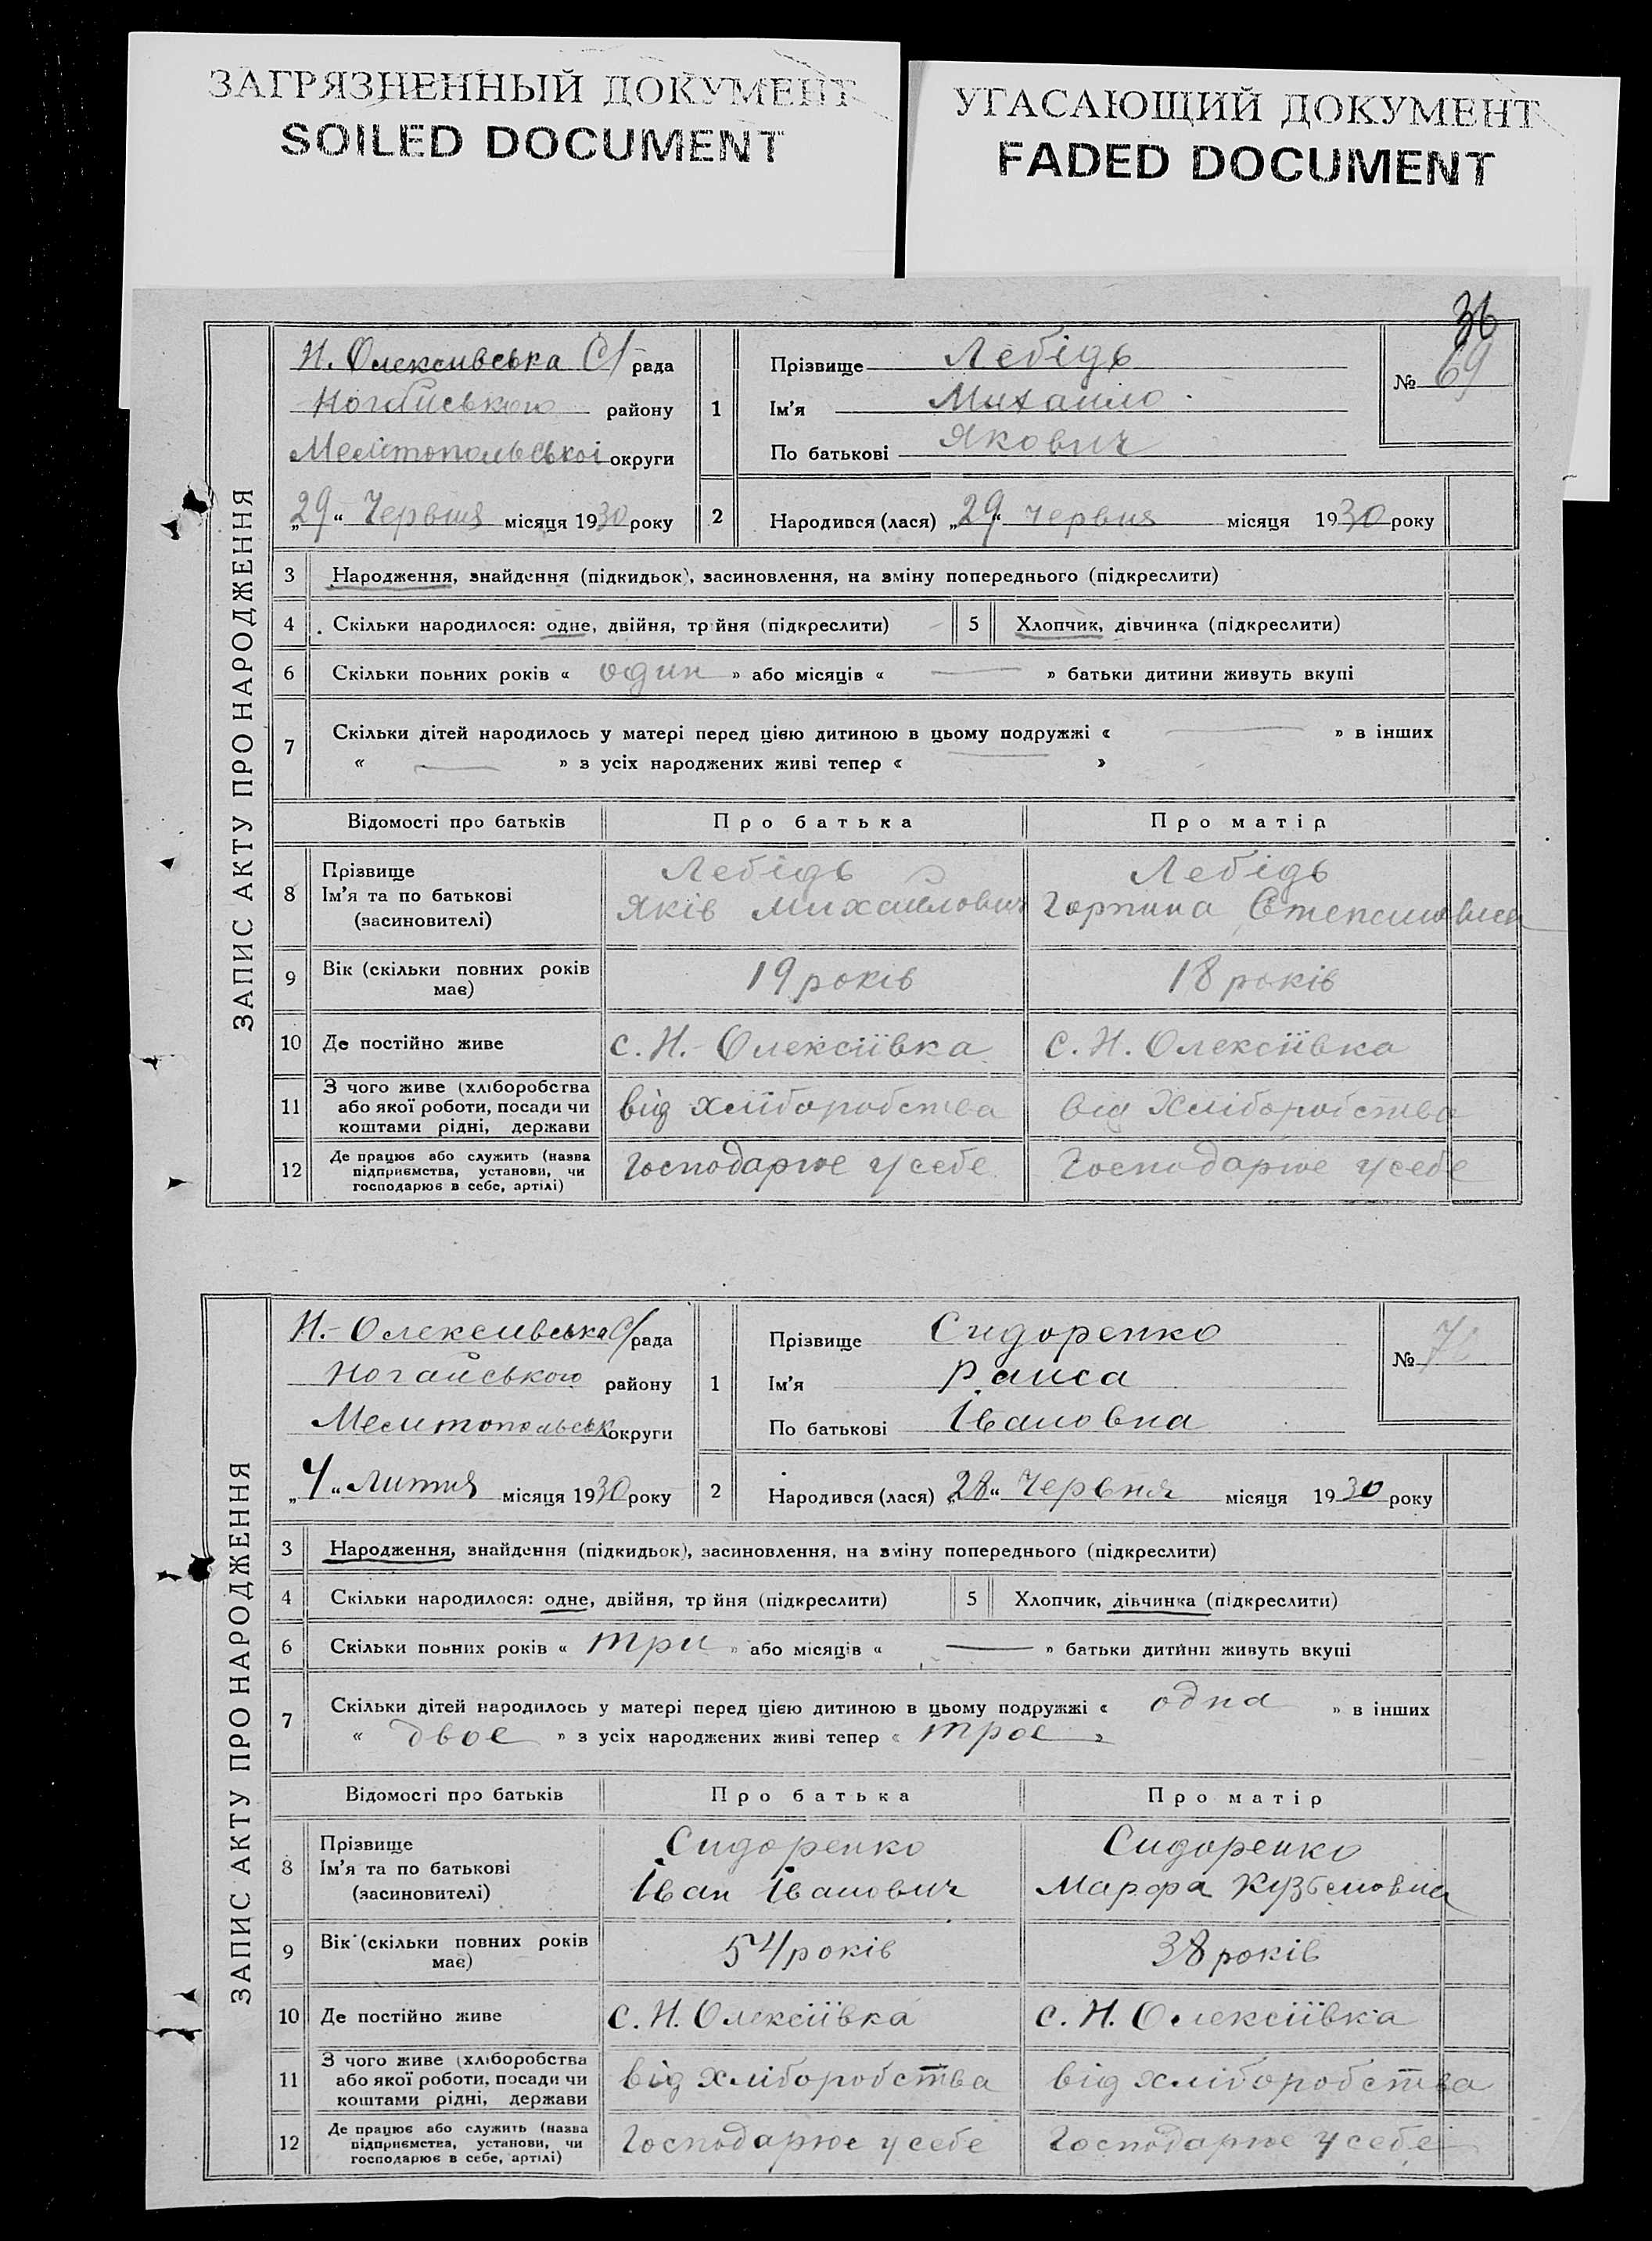 ЗАГРЯЗНЕННЫЙ ДОКУМЕНТ
SOILED DOCUMENT
УГАСАЮЩИЙ ДОКУМЕНТ
FADED DOCUMENT
36
ЗАПИС АКТУ ПРО НАРОДЖЕННЯ
Н. Олексивська С/рада
Ногайського району
Мелітопольської округи
„29“ Червня місяця 1930 року
1
Прізвище Лебідь
Ім'я Михаило
По батькові Якович
№ 69
2 Народився (лася) „29“ червня місяця 1930 року
3 Народження, знайдення (підкидьок), засиновлення, на зміну попереднього (підкреслити)
4 Скільки народилося: одне, двійня, тр йня (підкреслити) 5 Хлопчик, дівчинка (підкреслити)
6 Скільки повних років « один » або місяців « — » батьки дитини живуть вкупі
7 Скільки дітей народилось у матері перед цією дитиною в цьому подружжі « — » в інших
« — » з усіх народжених живі тепер « — »
Відомості про батьків Про батька Про матір
8 Прізвище
Ім'я та по батькові
(засиновителі)
Лебідь
Яків Михаилович
Лебідь
Горпина
9 Вік (скільки повних років
має)
19 років 18 років
10 Де постійно живе с. Н.-Олексіївка с. Н. Олексіївка
11 З чого живе (хліборобства
або якої роботи, посади чи
коштами рідні, держави
від хліборобства від хліборобства
12 Де працює або служить (назва
підприємства, установи, чи
господарює в себе, артілі)
Господарює у себе Господарює у себе
ЗАПИС АКТУ ПРО НАРОДЖЕННЯ
Н.-Олексивська С/рада
Ногайського району
Мелитопольськ округи
„4“ Литня місяця 1930 року
1
Прізвище Сидоренко
Ім'я Раиса
По батькові Івановна
№
2 Народився (лася) „28“ Червня місяця 1930 року
3 Народження, знайдення (підкидьок), засиновлення, на зміну попереднього (підкреслити)
4 Скільки народилося: одне, двійня, тр йня (підкреслити) 5 Хлопчик, дівчинка (підкреслити)
6 Скільки повних років « три » або місяців « — » батьки дитини живуть вкупі
7 Скільки дітей народилось у матері перед цією дитиною в цьому подружжі « одна » в інших
« двое » з усіх народжених живі тепер « трое »
Відомості про батьків Про батька Про матір
8 Прізвище
Ім'я та по батькові
(засиновителі)
Сидоренко
Іван Іванович
Сидоренко
Марфа Кузьмовна
9 Вік (скільки повних років
має)
54 років 38 років
10 Де постійно живе с. Н. Олексіївка с. Н. Олексіївка
11 З чого живе (хліборобства
або якої роботи, посади чи
коштами рідні, держави
від хліборобства від хліборобства
12 Де працює або служить (назва
підприємства, установи, чи
господарює в себе, артілі)
Господарює у себе Господарює у себе